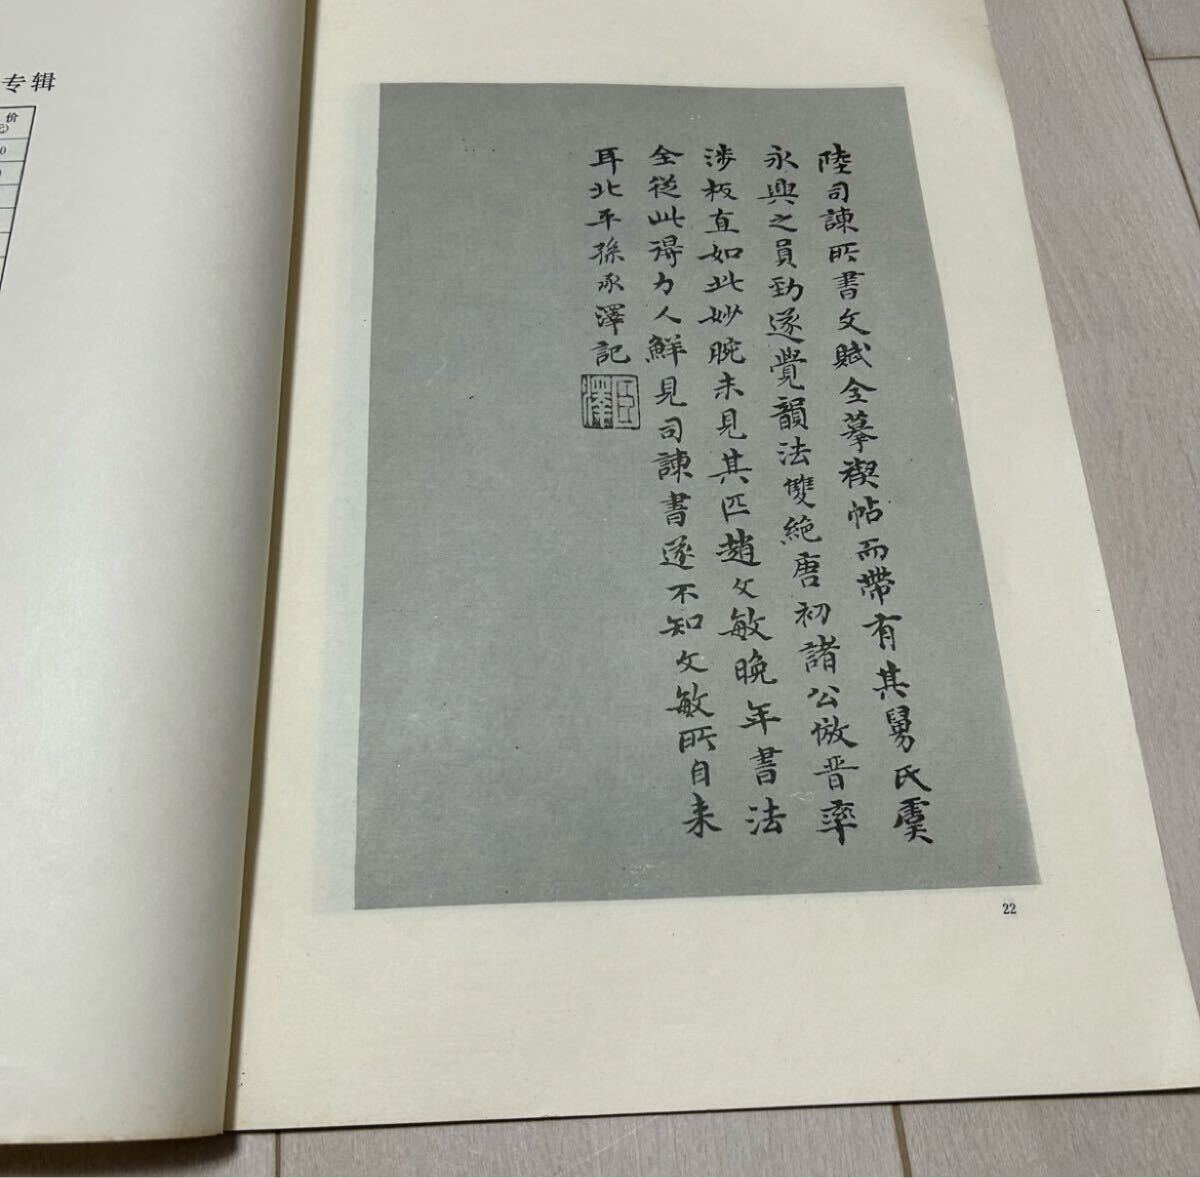 专辑
价
元)
0
陸司諫所書文賦全摹禊帖而帶有其舅氏虞
永興之員勁遂覺韻法雙絶唐初諸公倣晋率
涉板直如此妙腕未見其匹趙文敏晚年書法
全從此得力人鮮見司諫書遂不知文敏所自来
耳北平孫承澤記
臣澤
22